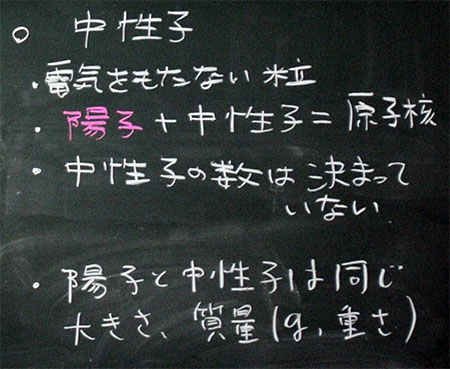 ○ 中性子
・電気をもたない粒
・陽子+中性子=原子核
・中性子の数は決まって
いない
・陽子と中性子は同じ
大きさ、質量(g,重さ)